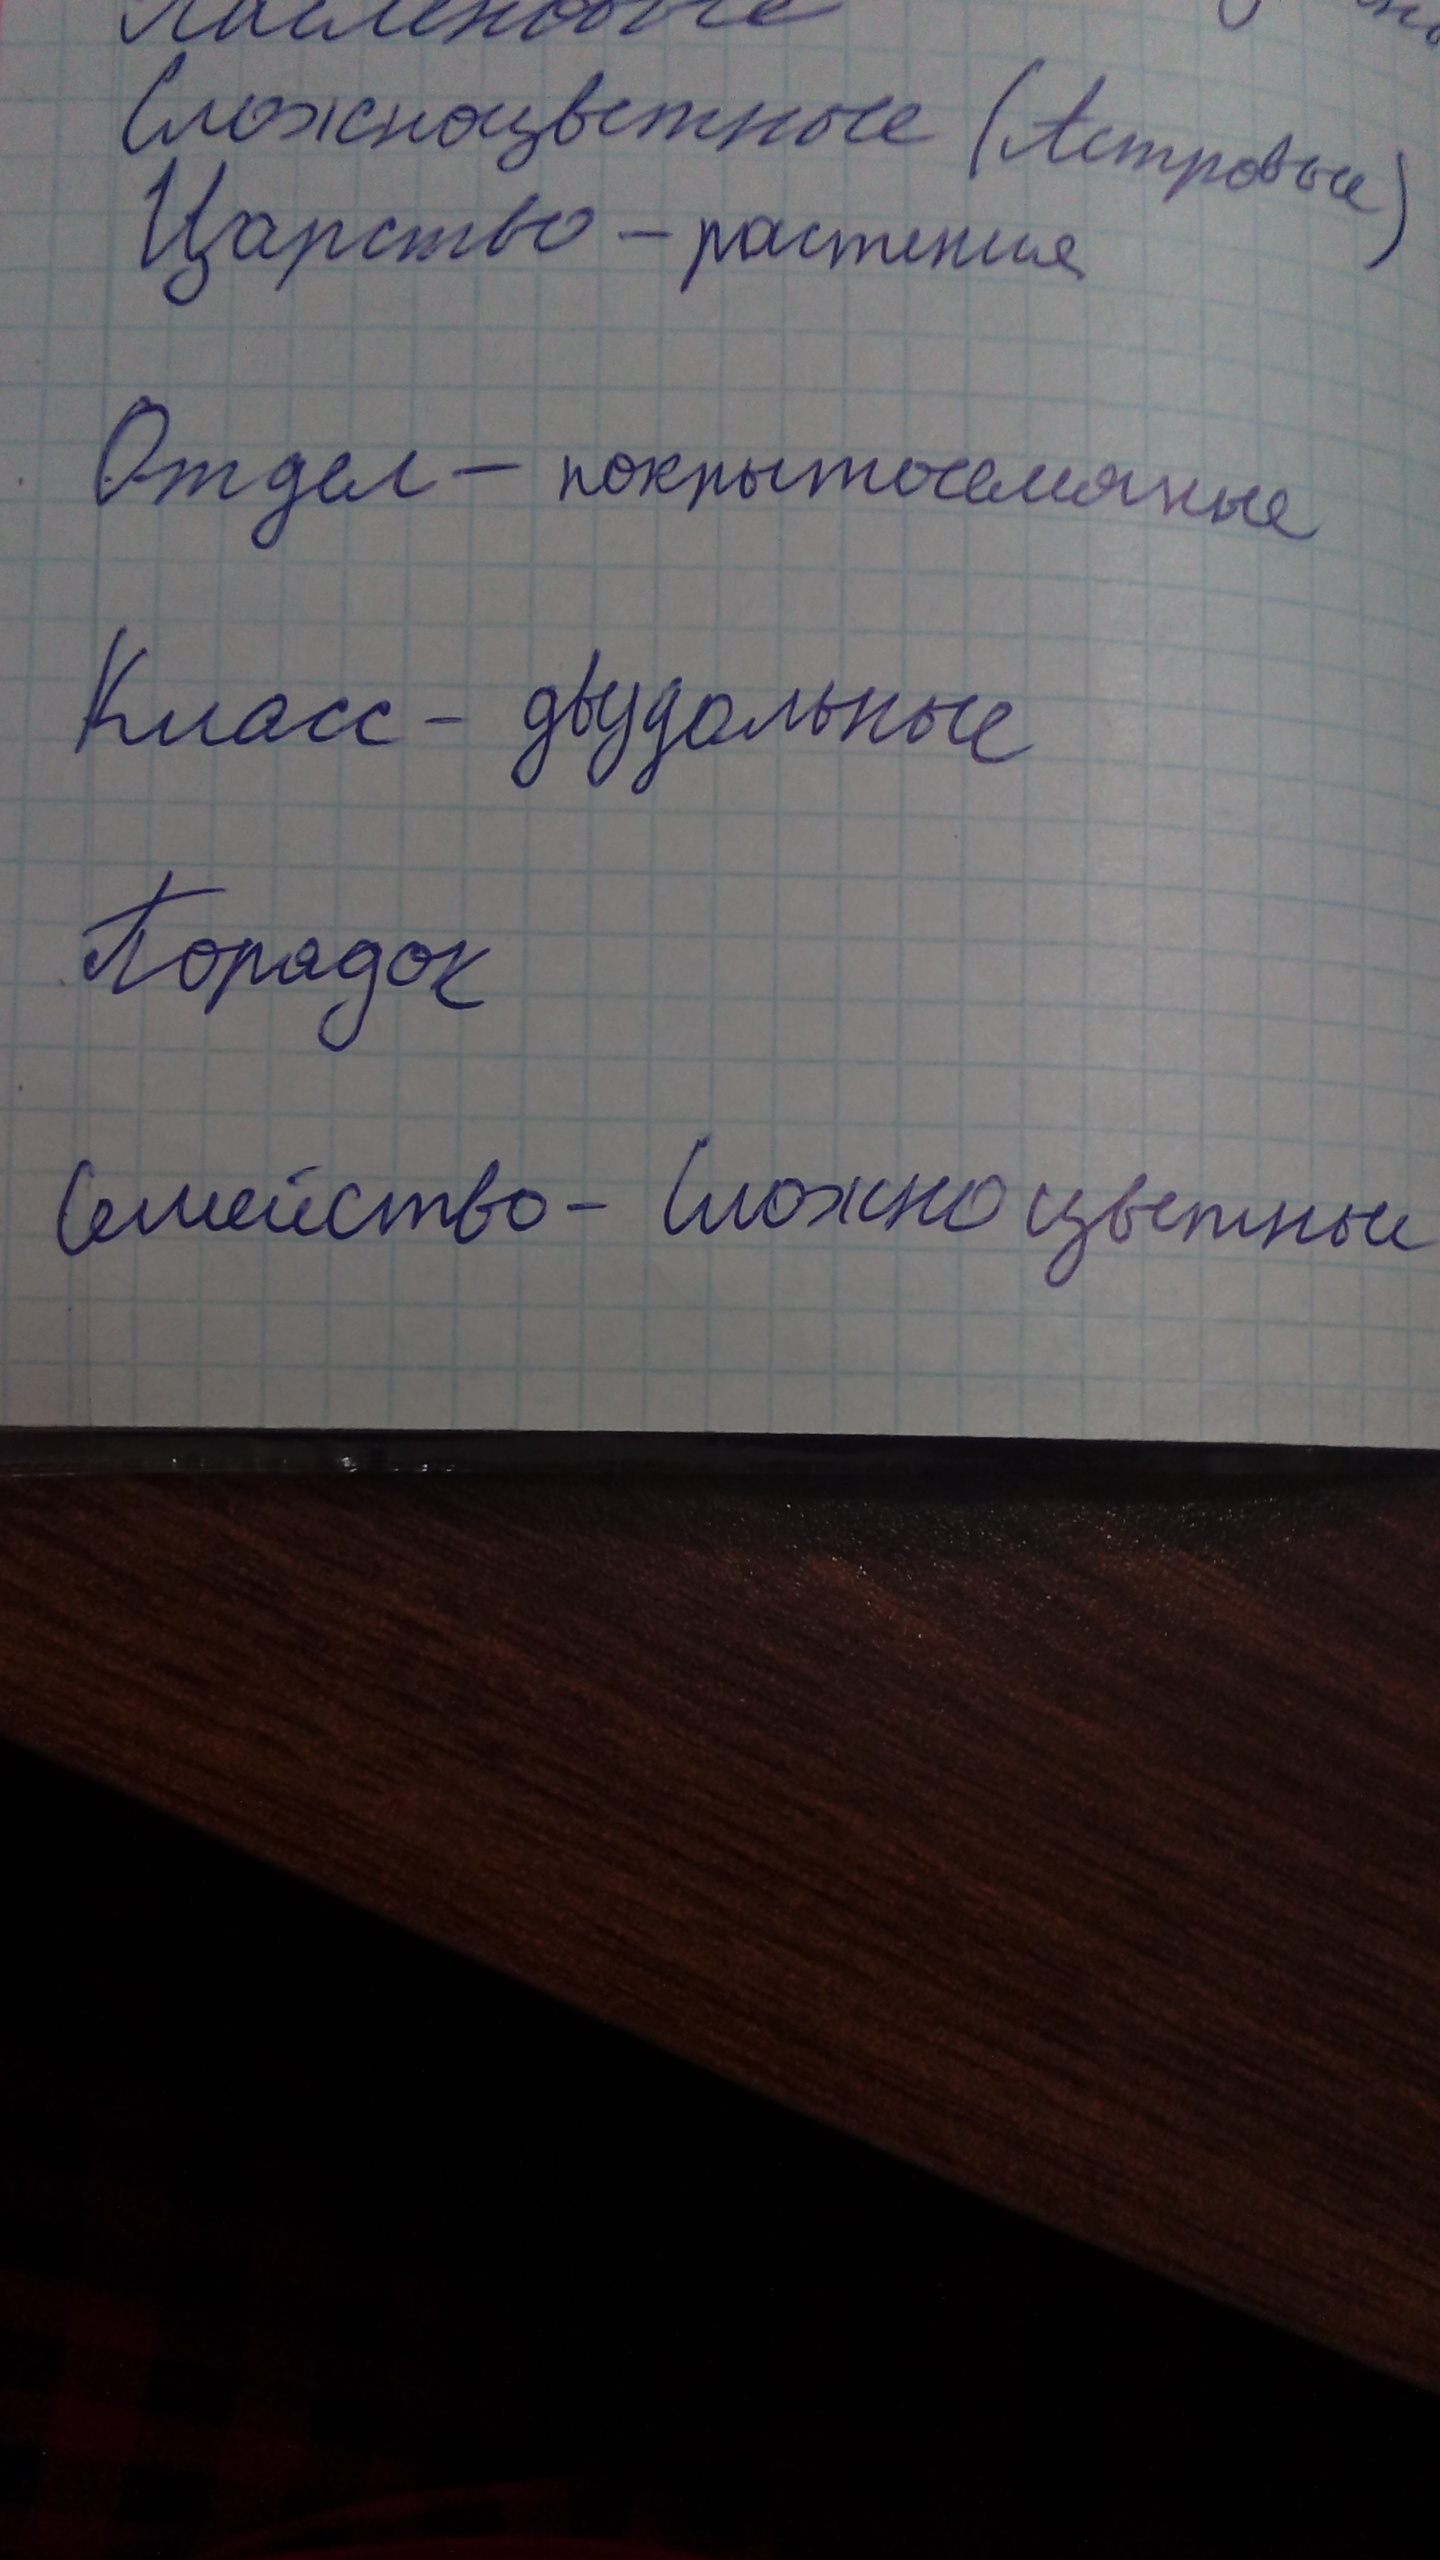 Пасленовые
Сложноцветные (Астровые)
Царство – растения
Отдел – покрытосемяные
Класс – двудольные
Порядок
Семейство – Сложноцветные